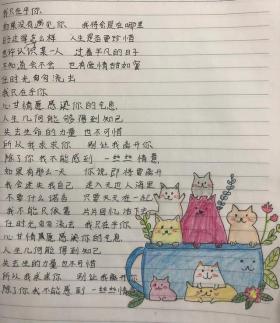 我只在乎你
如果没有遇见你 我将会是在哪里
过得怎么样 人生是否要珍惜
也许认识某一人 过着平凡的日子
不知道会不会 也有爱情甜如蜜
任时光匆匆流去
我只在乎你
心甘情愿感染你的气息
人生几何能够得到知己
失去生命的力量 也不可惜
所以我求求你 别让我离开你
除了你我不能感到 一丝丝情意
如果有那么一天 你说即将要离开
我会迷失我自己 走入无边人海里
不要什么诺言 只要天天在一起
我不能只依靠 片片回忆活下去
任时光匆匆流去 我只在乎你
心甘情愿感染你的气息
人生几何能得到知己
失去生的力量也不可惜
所以我求求你 别让我离开你
除了你我不能感到 一丝丝情意